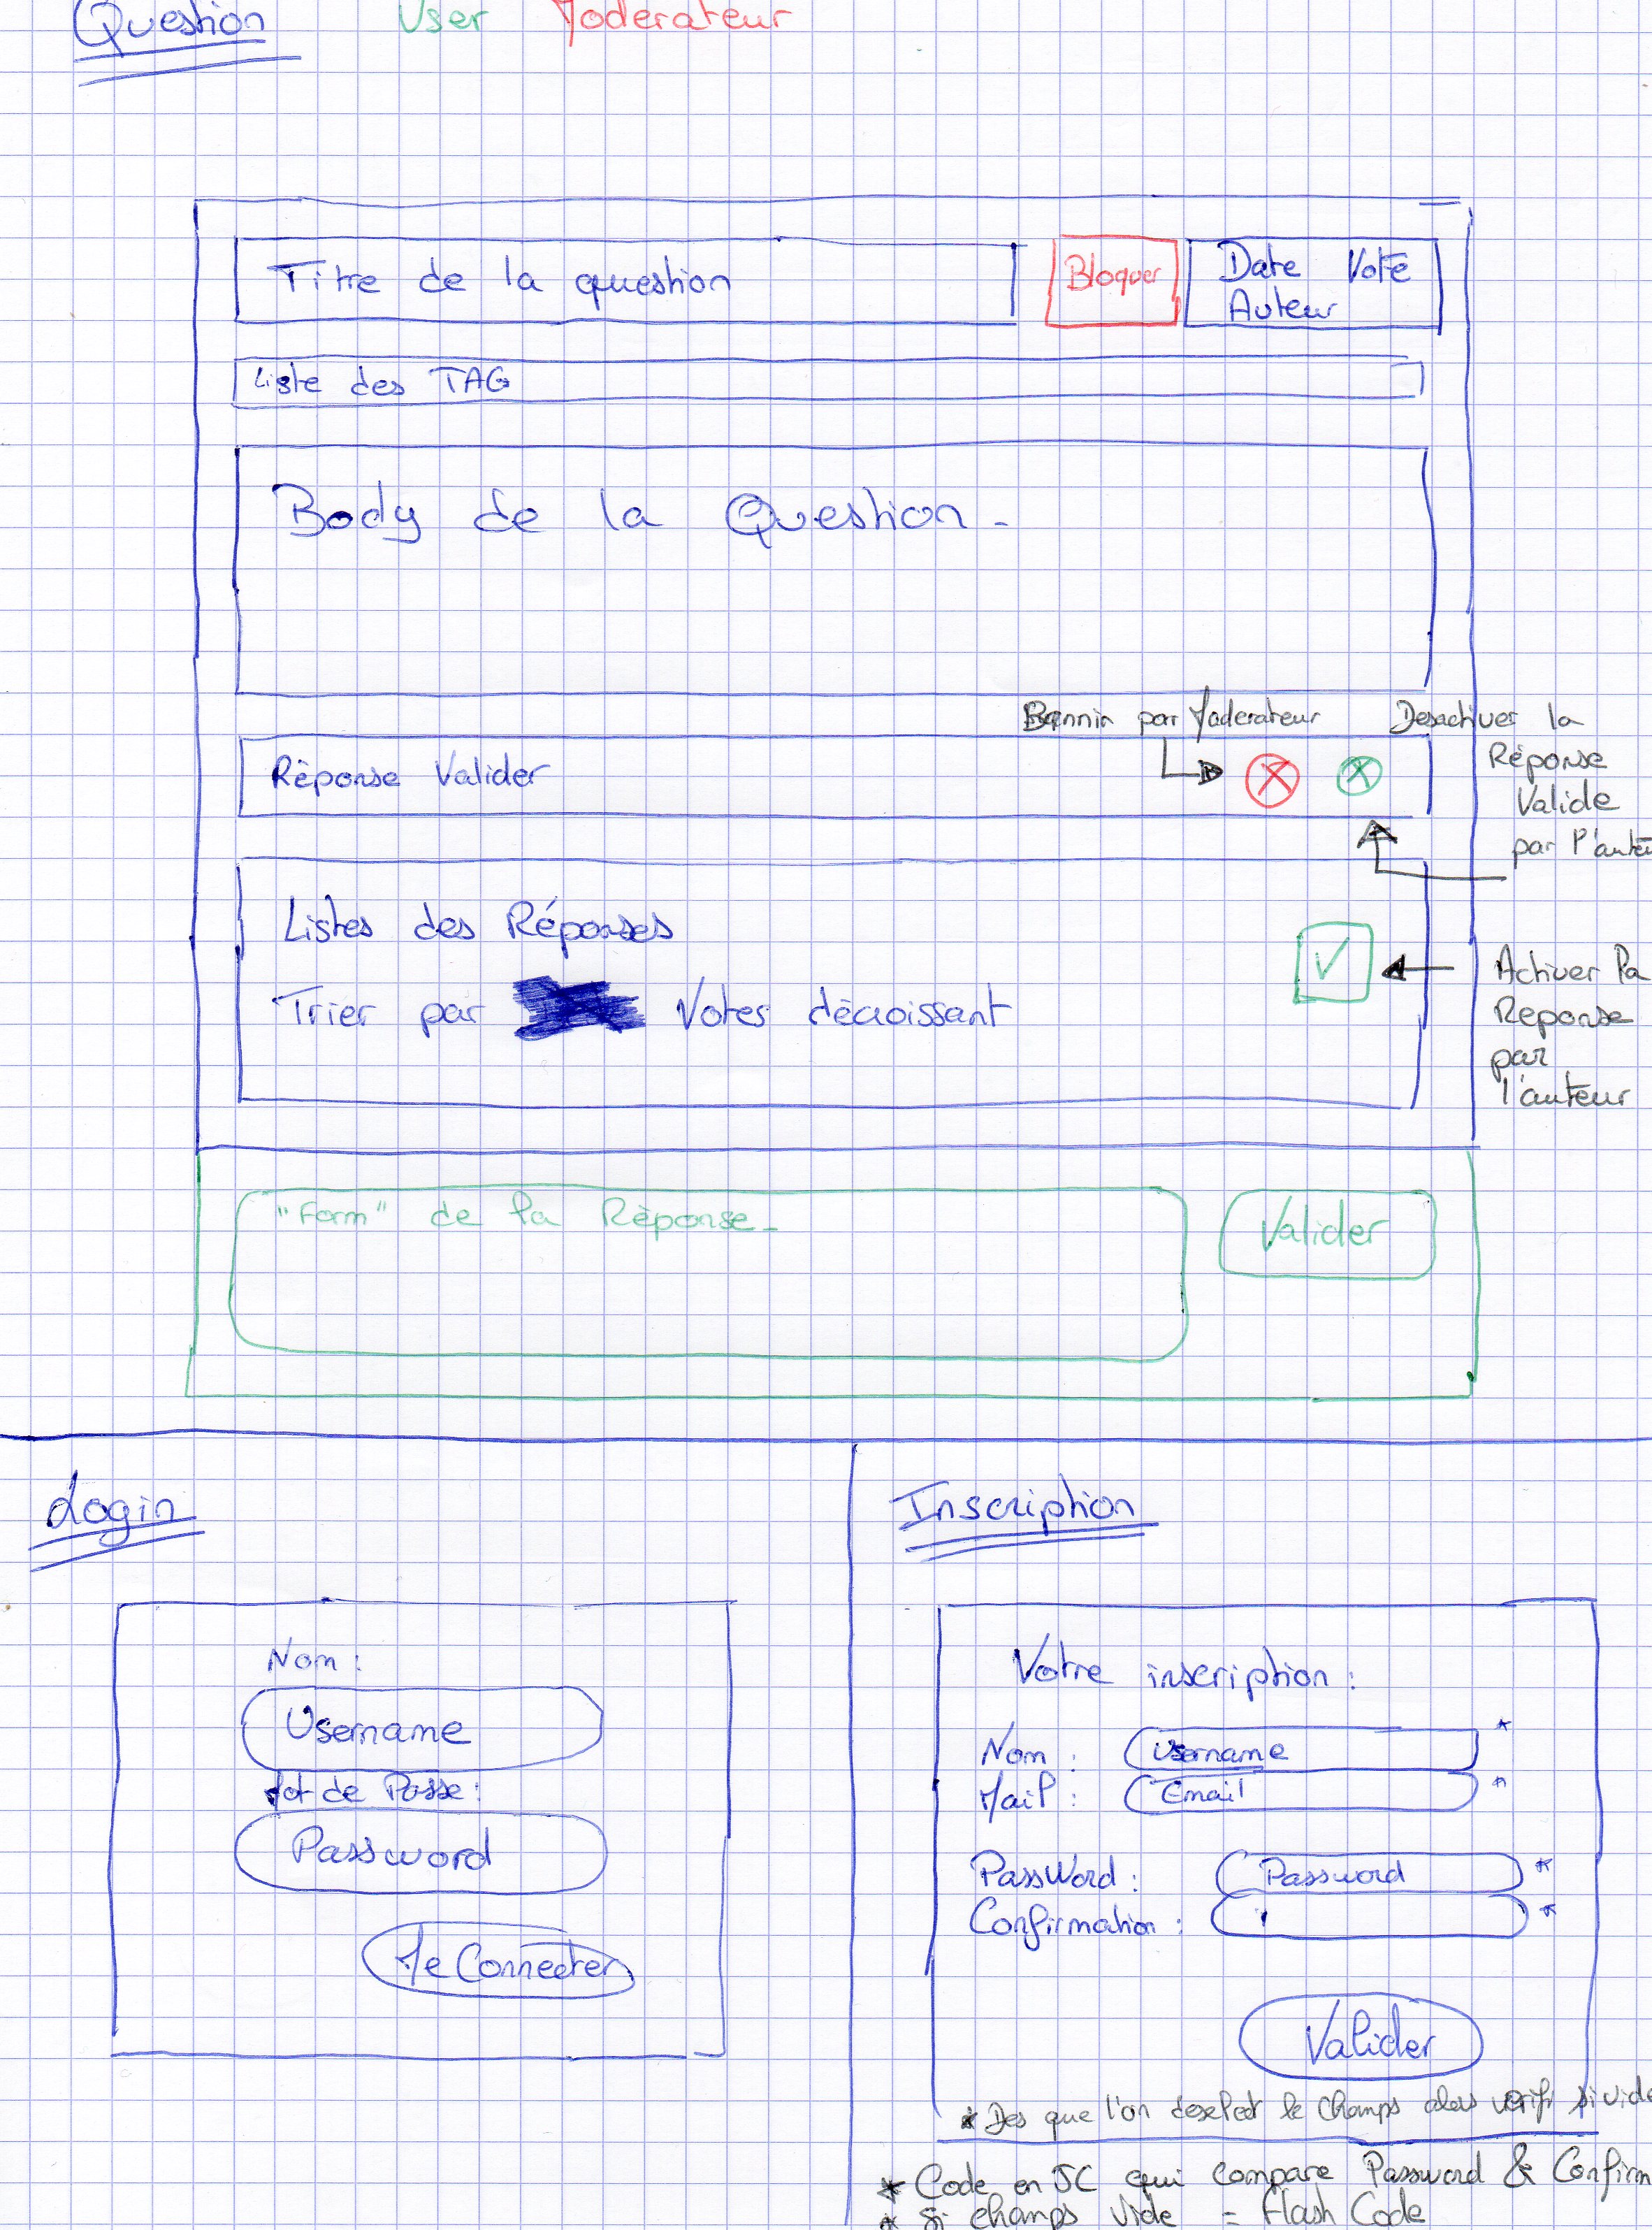 Question User Moderateur
Titre de la question
Bloquer
Date Vote
Auteur
Liste des TAG
Body de la Question -
Bannir par Moderateur
Desactiver la
Réponse
Valide
par l'auteu
Réponse Valider
Listes des Réponses
Trier par Votes décroissant
Activer la
Reponse
par
l'auteur
"Form" de la Réponse -
Valider
Login
Nom :
Username
Mot de Passe :
Password
Me Connecter
Inscription
Votre inscription :
Nom : Username *
Mail : Email *
PassWord : Password *
Confirmation : *
Valider
* Des que l'on deselect le champs alors verifi si vide
* Code en JC qui compare Password & Confirm
* Si champs vide = Flash Code